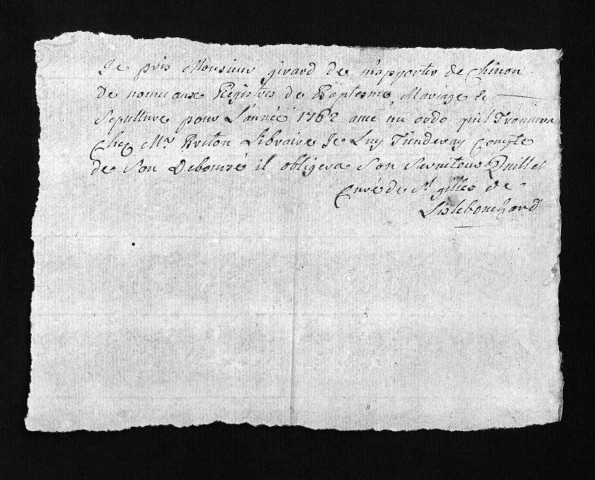 Je pris Monsieur girard de m'apporter de Chinon
de nouveaux Régistres de Baptesme, Mariage &
Sepulture pour L'année 1762 avec un ordo qu'il Trouvera
Chez Mr Breton Libraire Je Luy Tiendray Compte
de Son Debourcé il obligera Son Serviteur Quillet
Curé de St gilles de
Lislebouchard